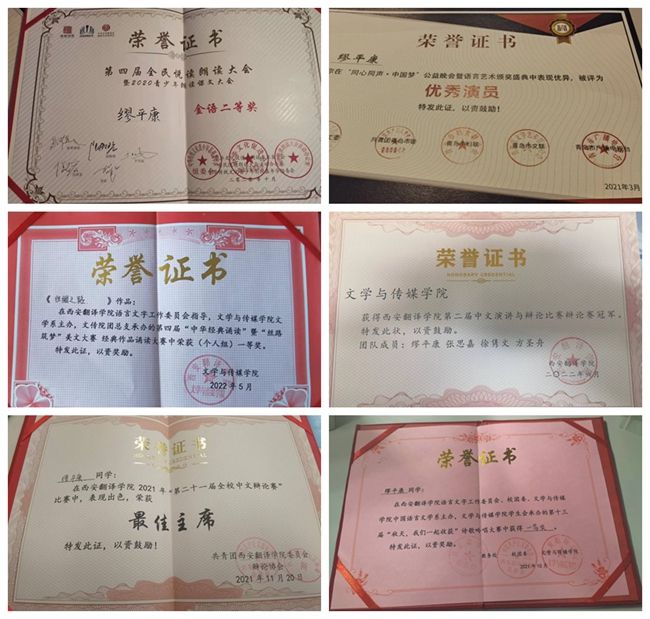 荣誉证书
第四届全民悦读朗读大会
暨2020青少年朗读课文大会
缪平康
金语二等奖
组委会
荣誉证书
缪平康
在“同心同声·中国梦”公益晚会暨语言艺术颁奖盛典中表现优异，被评为
优秀演员
特发此证，以资鼓励！
青岛市文联
2021年3月
荣誉证书
作品：
在西安翻译学院语言文字工作委员会指导，文学与传媒学院文
学系主办，文传院团总支承办的第四届“中华经典诵读”暨“丝路
筑梦”美文大赛 经典作品诵读大赛中荣获（个人组）一等奖。
特发此证，以资奖励。
文学与传媒学院
2022年5月
荣誉证书
HONORARY CREDENTIAL
文学与传媒学院
获得西安翻译学院第二届中文演讲与辩论比赛辩论赛冠军。
特发此状，以资鼓励。
团队成员：缪平康 张思嘉 徐隽文 方圣舟
西安翻译学院
荣誉证书
缪平康 同学：
在西安翻译学院2021年“第二十一届全校中文辩论赛”
比赛中，表现出色，荣获
最佳主席
特发此证，以资鼓励！
共青团西安翻译学院委员会
辩论协会
2021年11月20日
荣誉证书
缪平康 同学：
在西安翻译学院语言文字工作委员会、校团委、文学与传媒
学院中国语言文学系主办，文学与传媒学院学生会承办的第十三
届“秋天，我们一起收获”诗歌吟唱大赛中获得 一等奖。
特发此证，以资奖励。
教务处 校团委 文学与传媒学院